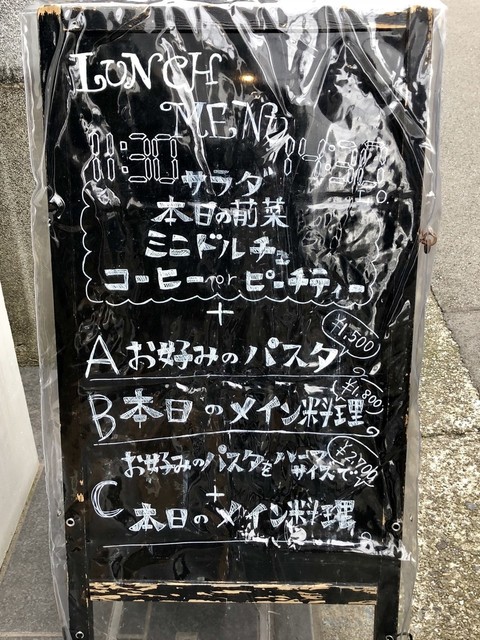 LUNCH
MENU
11:30 14:30
サラダ
本日の前菜
ミニドルチェ
コーヒー or ピーチティー
+
¥1,500
A お好みのパスタ
¥1,800
B 本日のメイン料理
¥2,700
お好みのパスタをハーフサイズで
+
C 本日のメイン料理